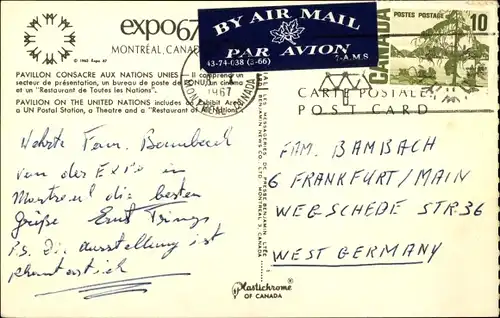 expo67
MONTRÉAL, CANADA
© 1963 Expo 67
PAVILLON CONSACRE AUX NATIONS UNIES — Il comprend un
secteur de présentation, un bureau de poste de l'ONU, un cinéma
et un "Restaurant de Toutes les Nations".
PAVILION ON THE UNITED NATIONS includes an Exhibit Area,
a UN Postal Station, a Theatre and a "Restaurant of All Nations".
Fam. Bambach
von der EXPO in
Montreal die besten
Grüße Ernst
P.S. Die Ausstellung ist
phantastisch
BY AIR MAIL
PAR AVION
43-74-038 (3-66) 7-A.M.S
1967
MONTREAL, CANADA
POSTES POSTAGE
10
CANADA
CARTE POSTALE
POST CARD
FAM. BAMBACH
6 FRANKFURT/MAIN
WEGSCHEDE STR 36
WEST GERMANY
MESSAGERIES DE PRESSE BENJAMIN LTÉE
BENJAMIN NEWS CO. LTD. MONTREAL 3, CANADA
Plastichrome®
OF CANADA